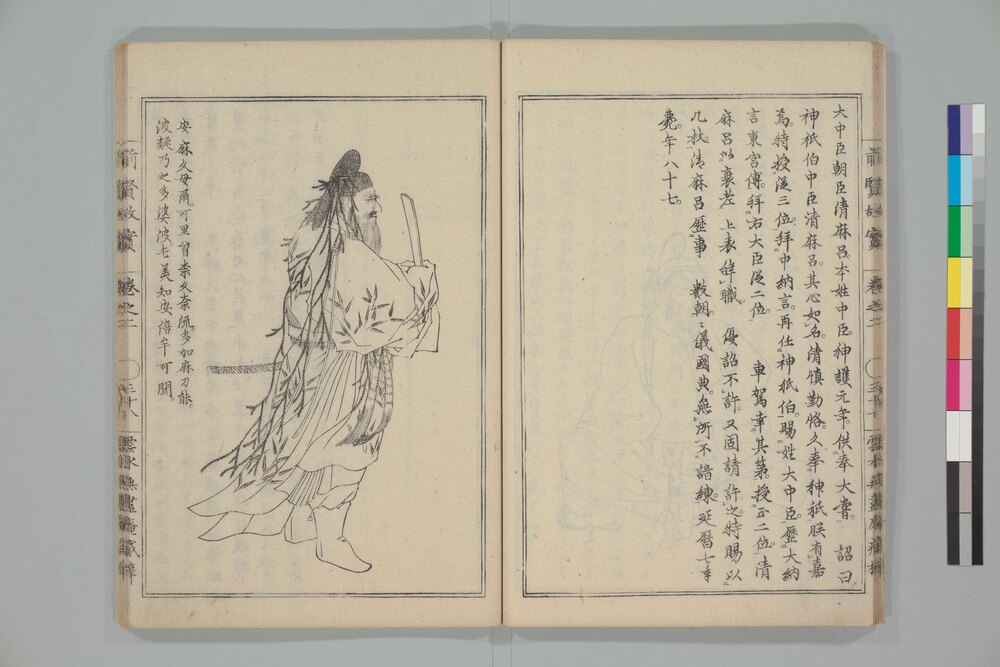 大中臣朝臣清麻呂本姓中臣神護元年供奉大嘗。詔曰
神祇伯中臣清麻呂。其心如名。清慎勤恪。久奉神祇。朕有嘉
焉。特授從三位。拜中納言。再仕神祇伯。賜姓大中臣。歷大納
言東宮傅。拜右大臣從二位。車駕幸其第。授正二位。清
麻呂以衰老上表辭職。優詔不許。又固請許之特賜以
几杖。清麻呂歷事數朝。儀國典。無所不諳練。延曆七年
薨。年八十七。
安麻久毋爾。可里曾奈久奈流。多加麻刀能。
波疑乃之多婆波。毛美知安倍牟可聞
前賢故實
卷之二
三十八
雲水無盡庵藏梓
前賢故實
卷之二